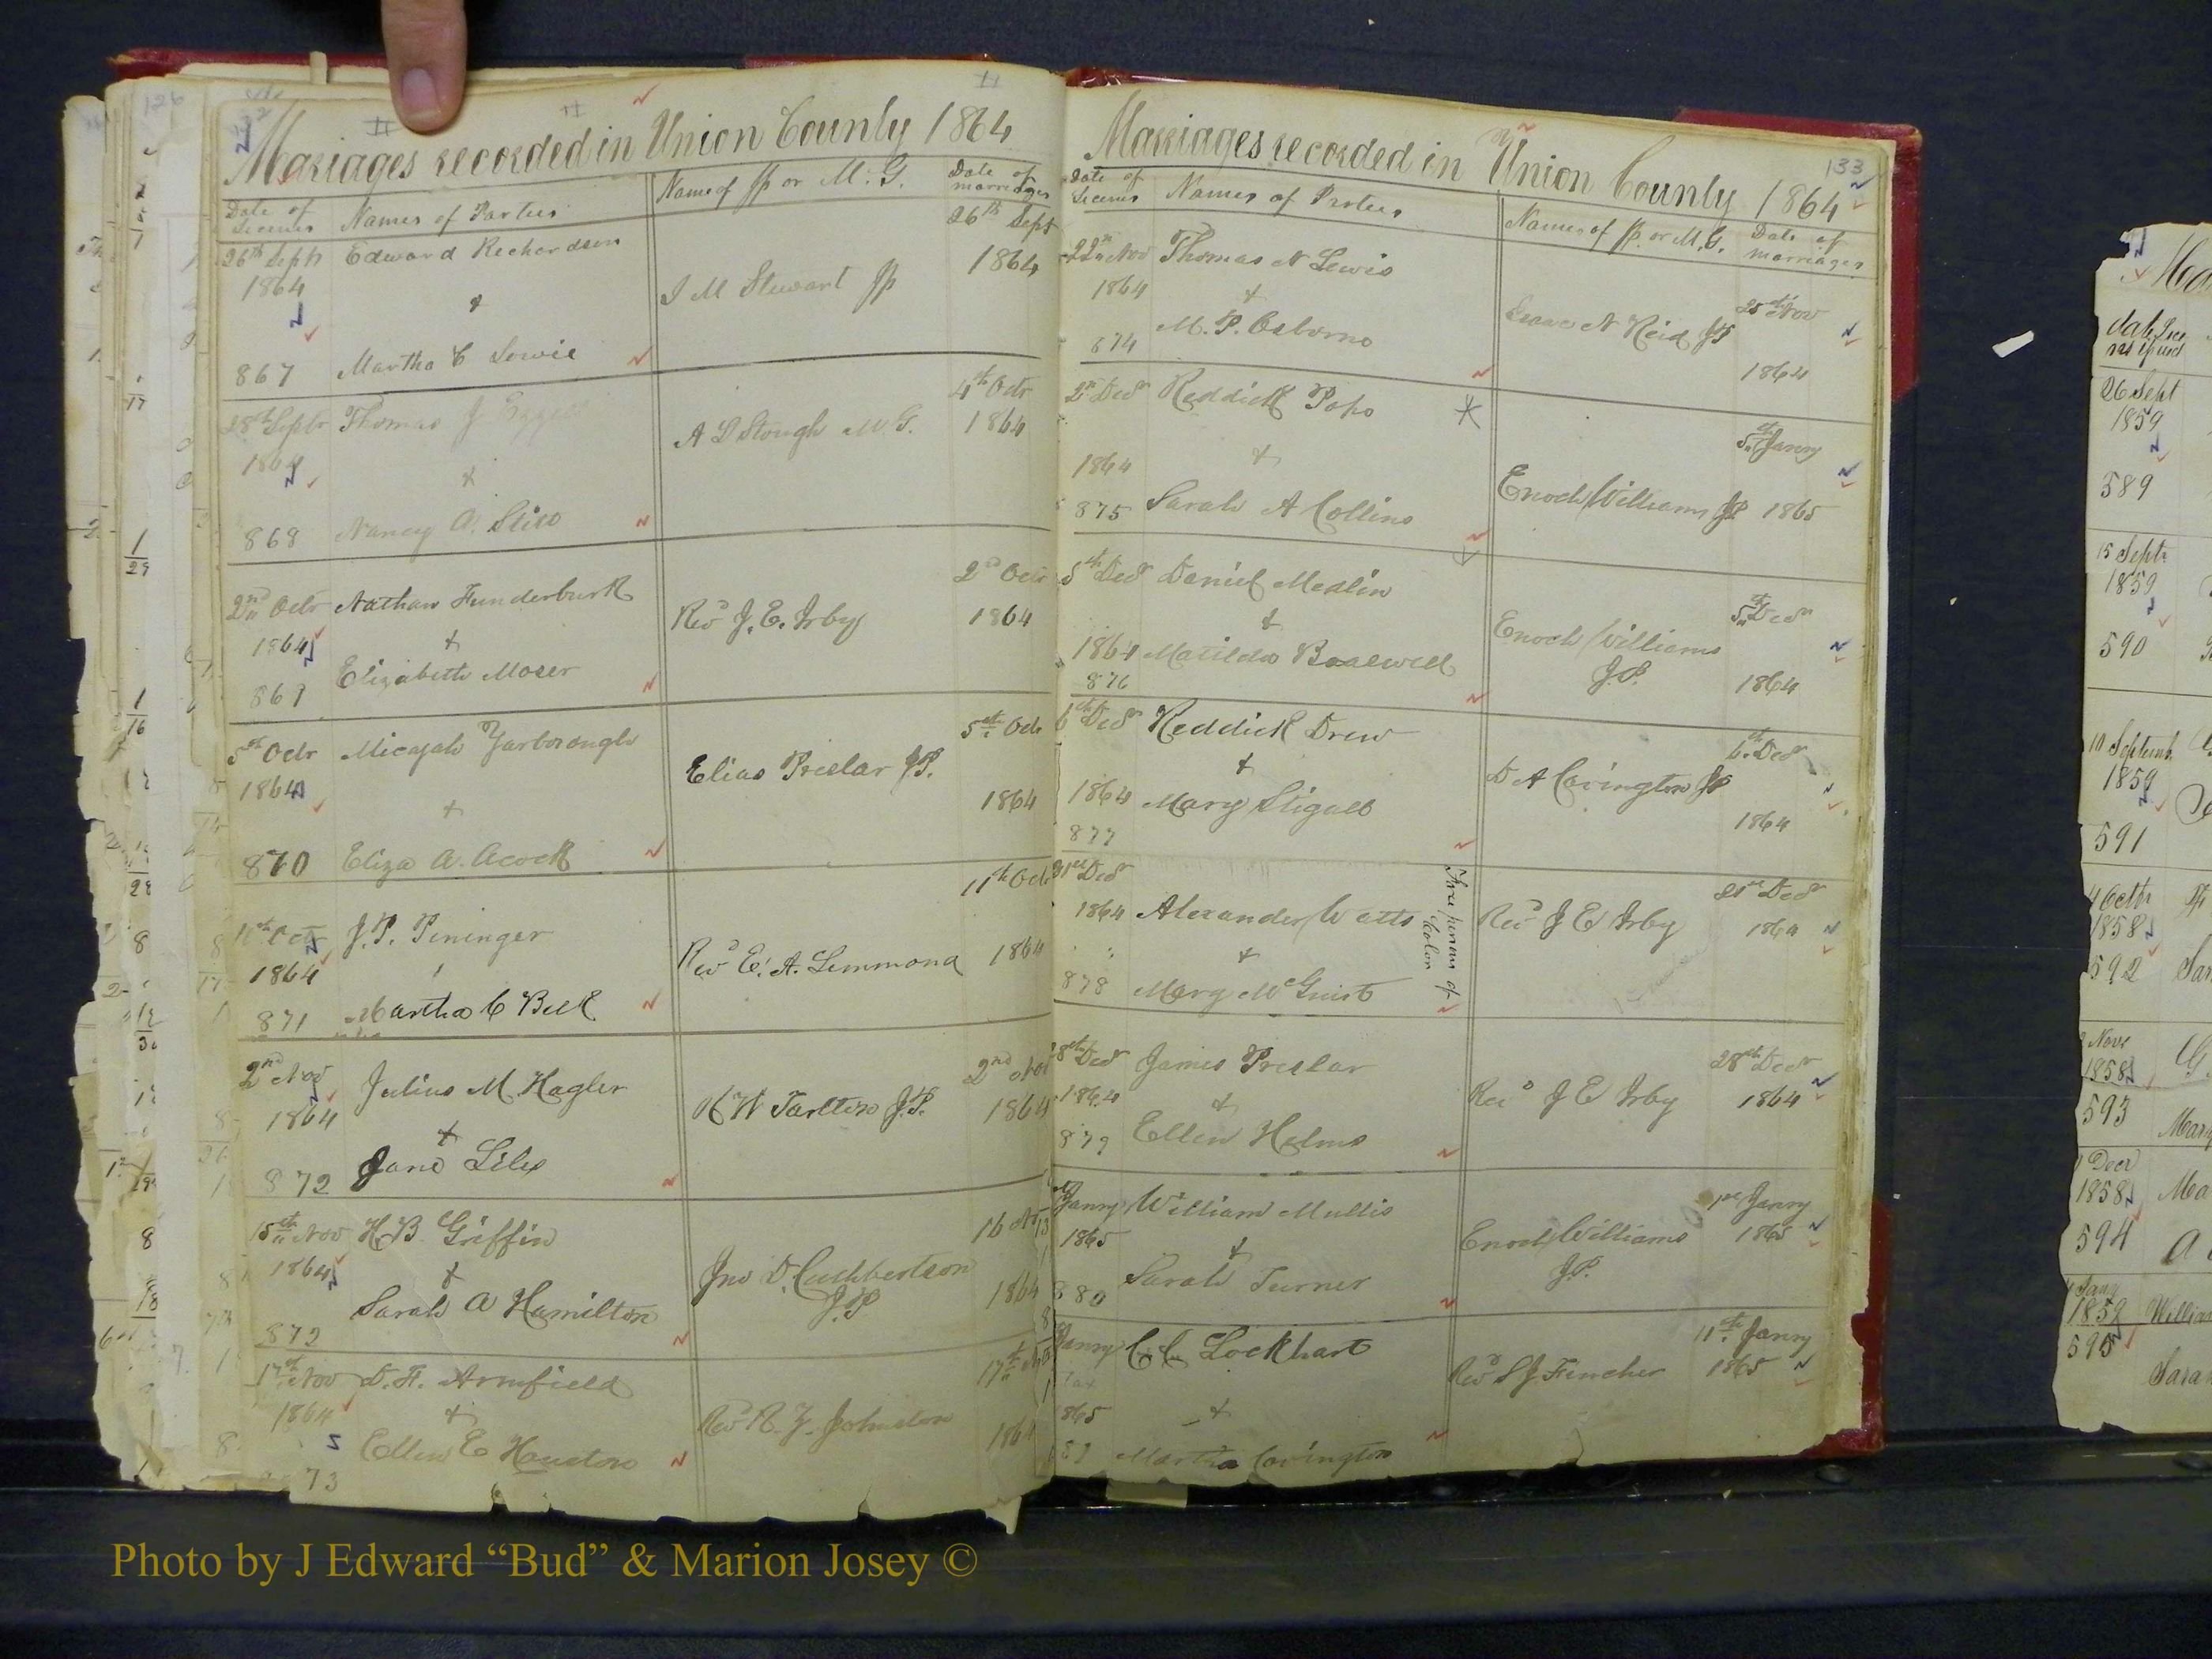 Mariages recorded in Union County 1864
Date of Licenses
Names of Parties
Names of JP or M. G.
Date of marriages
26th Sept 1864
Edward Richardson
&
Martha C Lewie
867
J M Stewart JP
26th Sept
1864
28th Septr
Thomas J
&
Nancy A.
868
A L Stough M G.
4th Octr
1864
2nd Octr
1864
Nathan Funderburk
&
Elizabeth Moser
869
Revd J. E. Irby
2d Octr
1864
5th Octr
1864
Micajah Yarborough
&
Eliza A. Acock
870
Elias Preslar J.P.
5th Octr
1864
11th Octr
1864
J. P. Peninger
Martha C Bell
871
Revd E. A. Lemmond
11th Octr
1864
2nd Nov
1864
Julius M. Hagler
&
Jane Liles
872
H W Tarlton J.P.
2nd Nov
1864
15th Nov
1864
H. B. Griffin
&
Sarah A Hamilton
872
Jno D. Cuthbertson
J.P
16
1864
17th Nov
1864
D. F. Armfield
&
Ellen E Houston
73
Revd R. Z. Johnston
17th
1864
Mariages recorded in Union County 1864
133
Date of Licenses
Names of Parties
Names of JP. or M. G.
Date of marriages
22nd Nov
1864
Thomas N Lewis
&
M. P. Osborne
874
Isaac N Reid JP
25th Nov
1864
2n Decr
1864
Reddick Pope
&
Sarah A Collins
875
Enoch Williams JP
5th Janry
1865
5th Decr
1864
Daniel Medlin
&
Matilda Braswell
876
Enoch Williams
J.P.
5th Decr
1864
6th Decr
1864
Reddick Drew
&
Mary Stigall
877
D A Covington JP
6th Decr
1864
21st Decr
1864
Alexander Watts
&
Mary McGuirt
878
Free persons of
Color
Revd J E Irby
21st Decr
1864
28th Decr
1864
James Preslar
&
Ellen Helms
879
Revd J E Irby
28th Decr
1864
Janry
1865
William Mullis
&
Sarah Turner
880
Enoch Williams
J.P.
1st Janry
1865
Janry
1865
C C Lockhart
&
Martha Covington
Revd S J Fincher
11th Janry
1865
26 Sept
1859
589
15 Septr
1859
590
10 Septemb
1859
591
4 Octr
1858
592
Nov
1858
593
Decr
1858
594
Jany
1859
595
Photo by J Edward “Bud” & Marion Josey ©